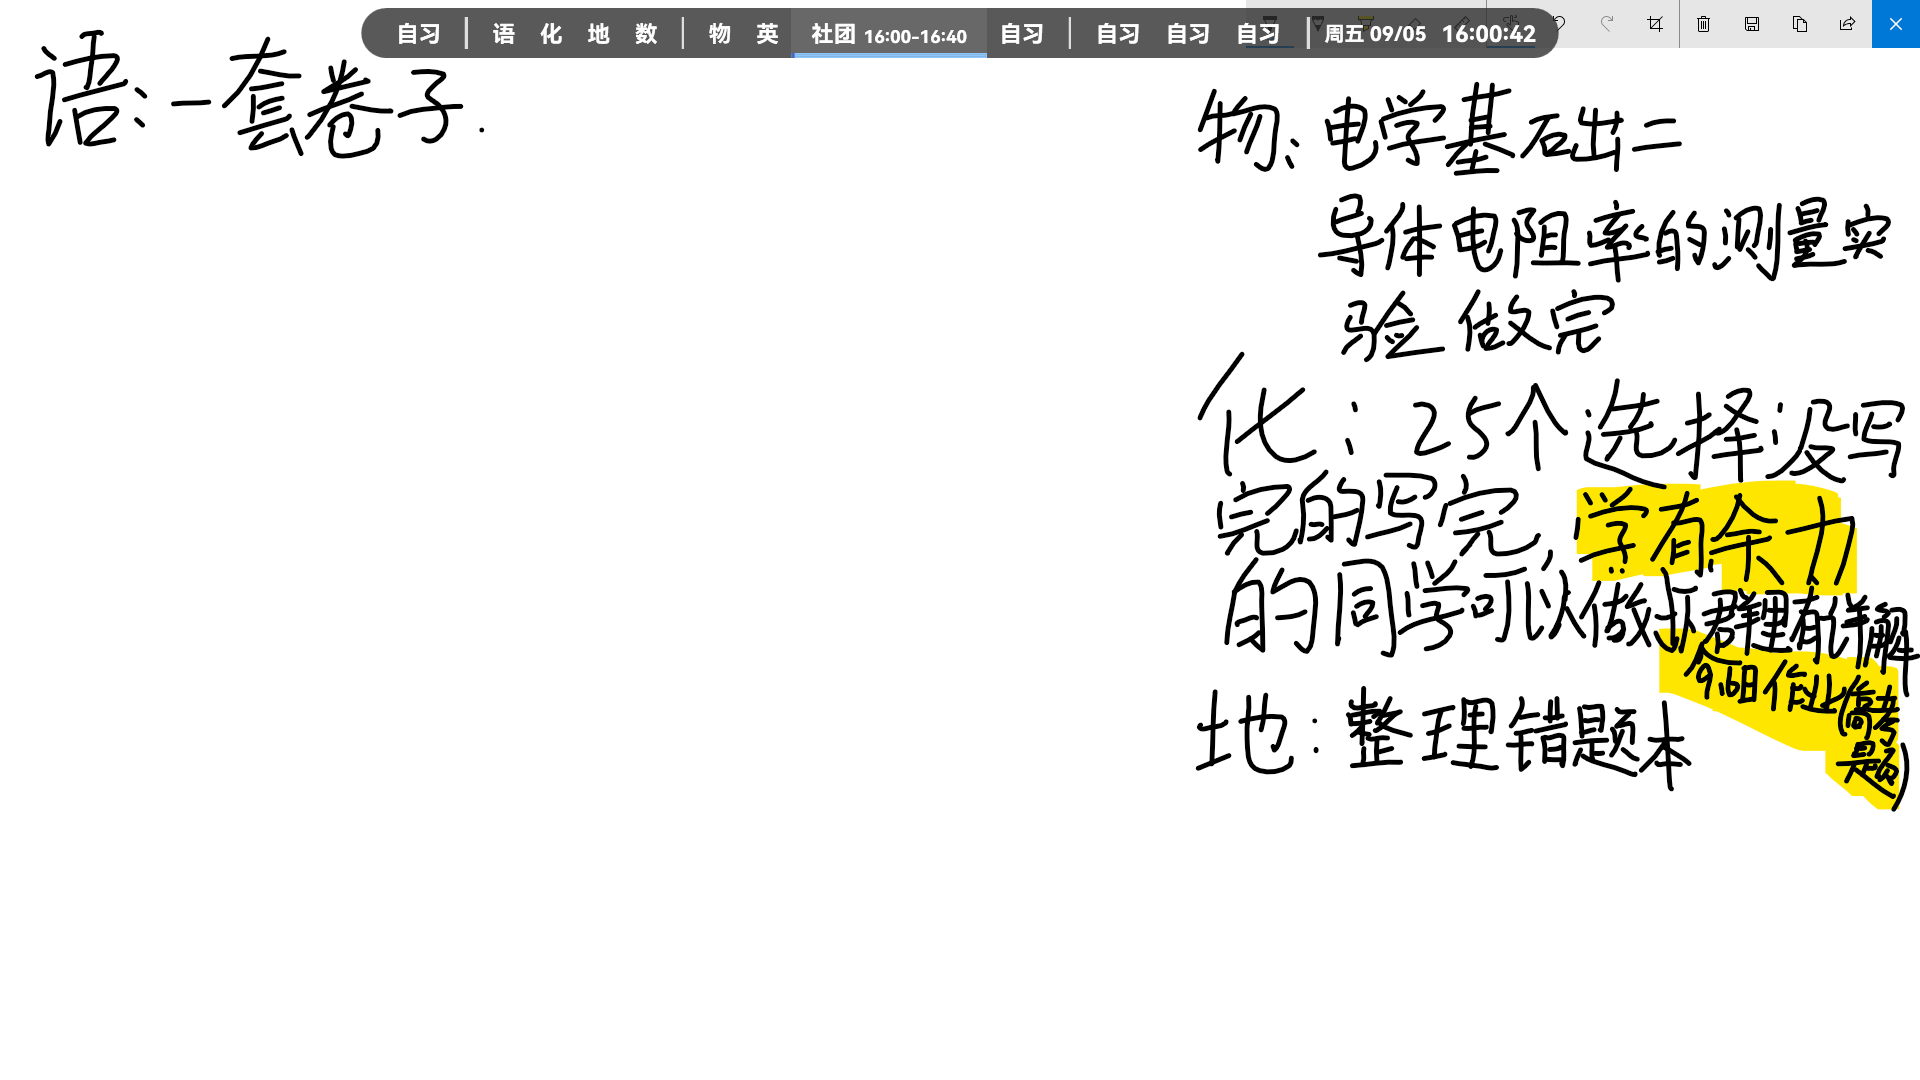 自习 | 语 化 地 数 | 物 英 社团 16:00-16:40 自习 | 自习 自习 自习 | 周五 09/05 16:00:42
语：一套卷子.
物：电学基础二
导体电阻率的测量实
验做完
化：25个选择没写
完的写完，学有余力
的同学可以做班群里有详解
9.6日作业(高考
题)
地：整理错题本